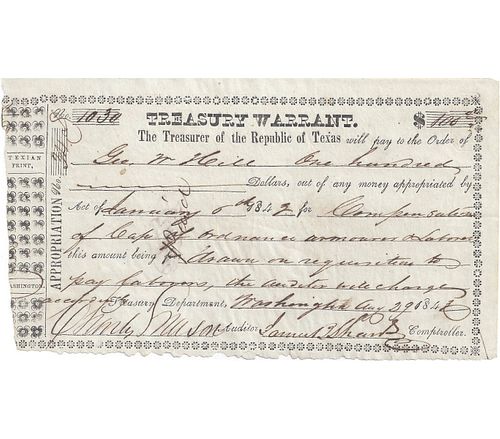 No 1030 TREASURY WARRANT. $ 100
The Treasurer of the Republic of Texas will pay to the Order of
Geo W Hill One hundred
TEXIAN
PRINT,
Dollars, out of any money appropriated by
Act of January 184 for Compensation
of Capt of ordnance armourers & laborers
this amount being drawn on requisition to
pay laborers, the auditor will charge
accordingly Treasury Department, Washington Aug 29 184
Charles Mason Auditor James B Shaw Comptroller.
APPROPRIATION No.
WASHINGTON